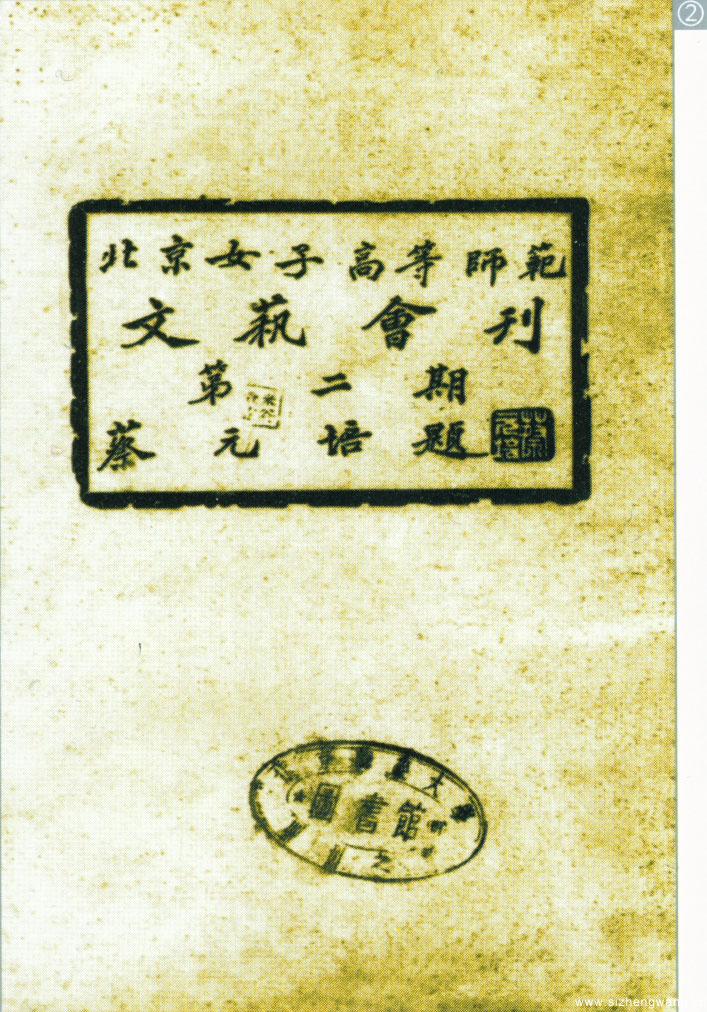 ②
北京女子高等師範
文藝會刊
第二期
蔡元培題
圖書館
www.sizhengwang